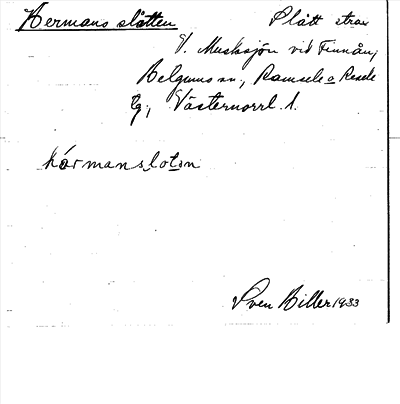 Hermans slåtten Slått strax
V. Musksjön vid Finnån,
Helgums sn, Ramsele o Resele
tg, Västernorrl. l.
hármanslotən
Sven Biller 1933